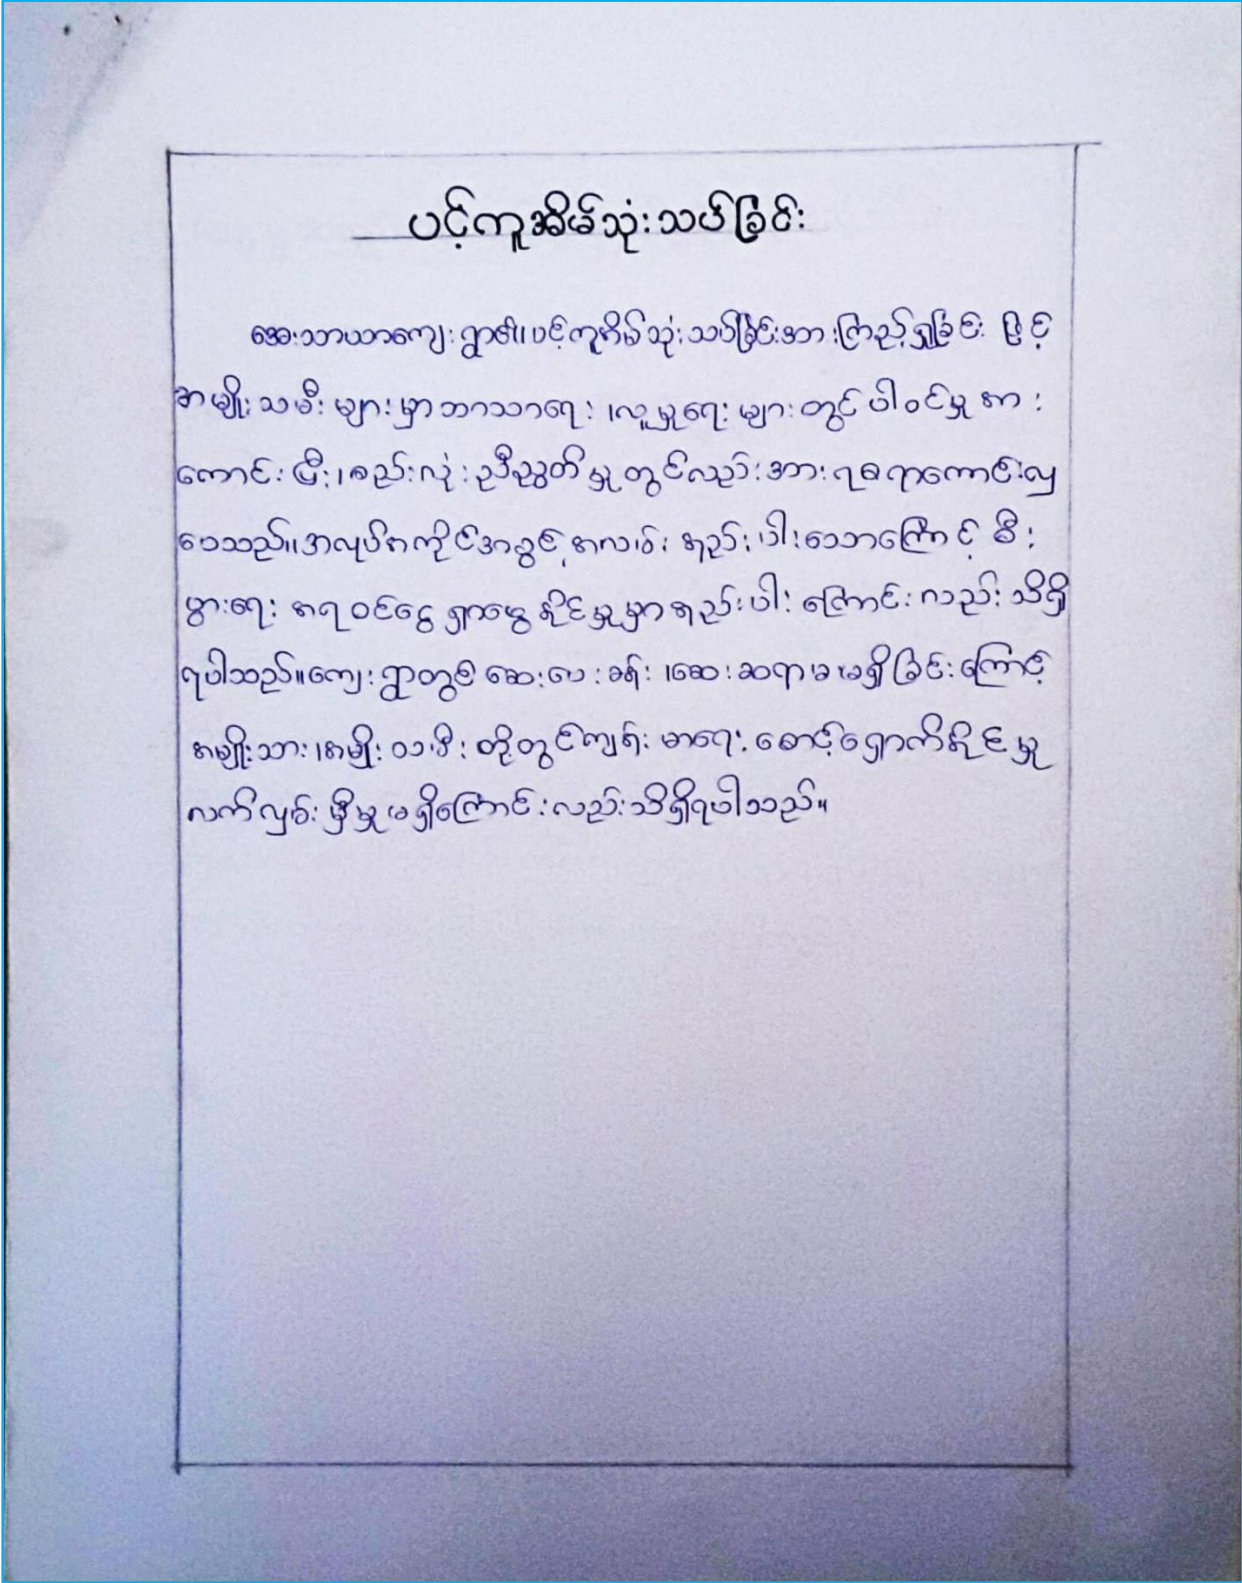 ပင့်ကူအိမ်သုံးသပ်ခြင်း
အေးသာယာကျေးရွာ၏ ပင့်ကူအိမ်သုံးသပ်ခြင်းအားကြည့်ရှုခြင်း ဖြင့်
အမျိုးသမီးများမှာဘာသာရေး၊လူမှုရေးများတွင်ပါဝင်မှုအား
ကောင်းပြီး၊စည်းလုံးညီညွတ်မှုတွင်လည်းအားရစရာကောင်းလှ
ပေသည်။အလုပ်အကိုင်အခွင့်အလမ်းနည်းပါးသောကြောင့် စီး
ပွားရေး အရဝင်ငွေရှာဖွေနိုင်မှုမှာနည်းပါးကြောင်းလည်းသိရှိ
ရပါသည်။ကျေးရွာတွင်ဆေးပေးခန်း၊ဆေးဆရာမမရှိခြင်းကြောင့်
အမျိုးသား၊အမျိုးသမီးတို့တွင်ကျန်းမာရေးစောင့်ရှောက်နိုင်မှု
လက်လှမ်းမှီမှုမရှိကြောင်းလည်းသိရှိရပါသည်။